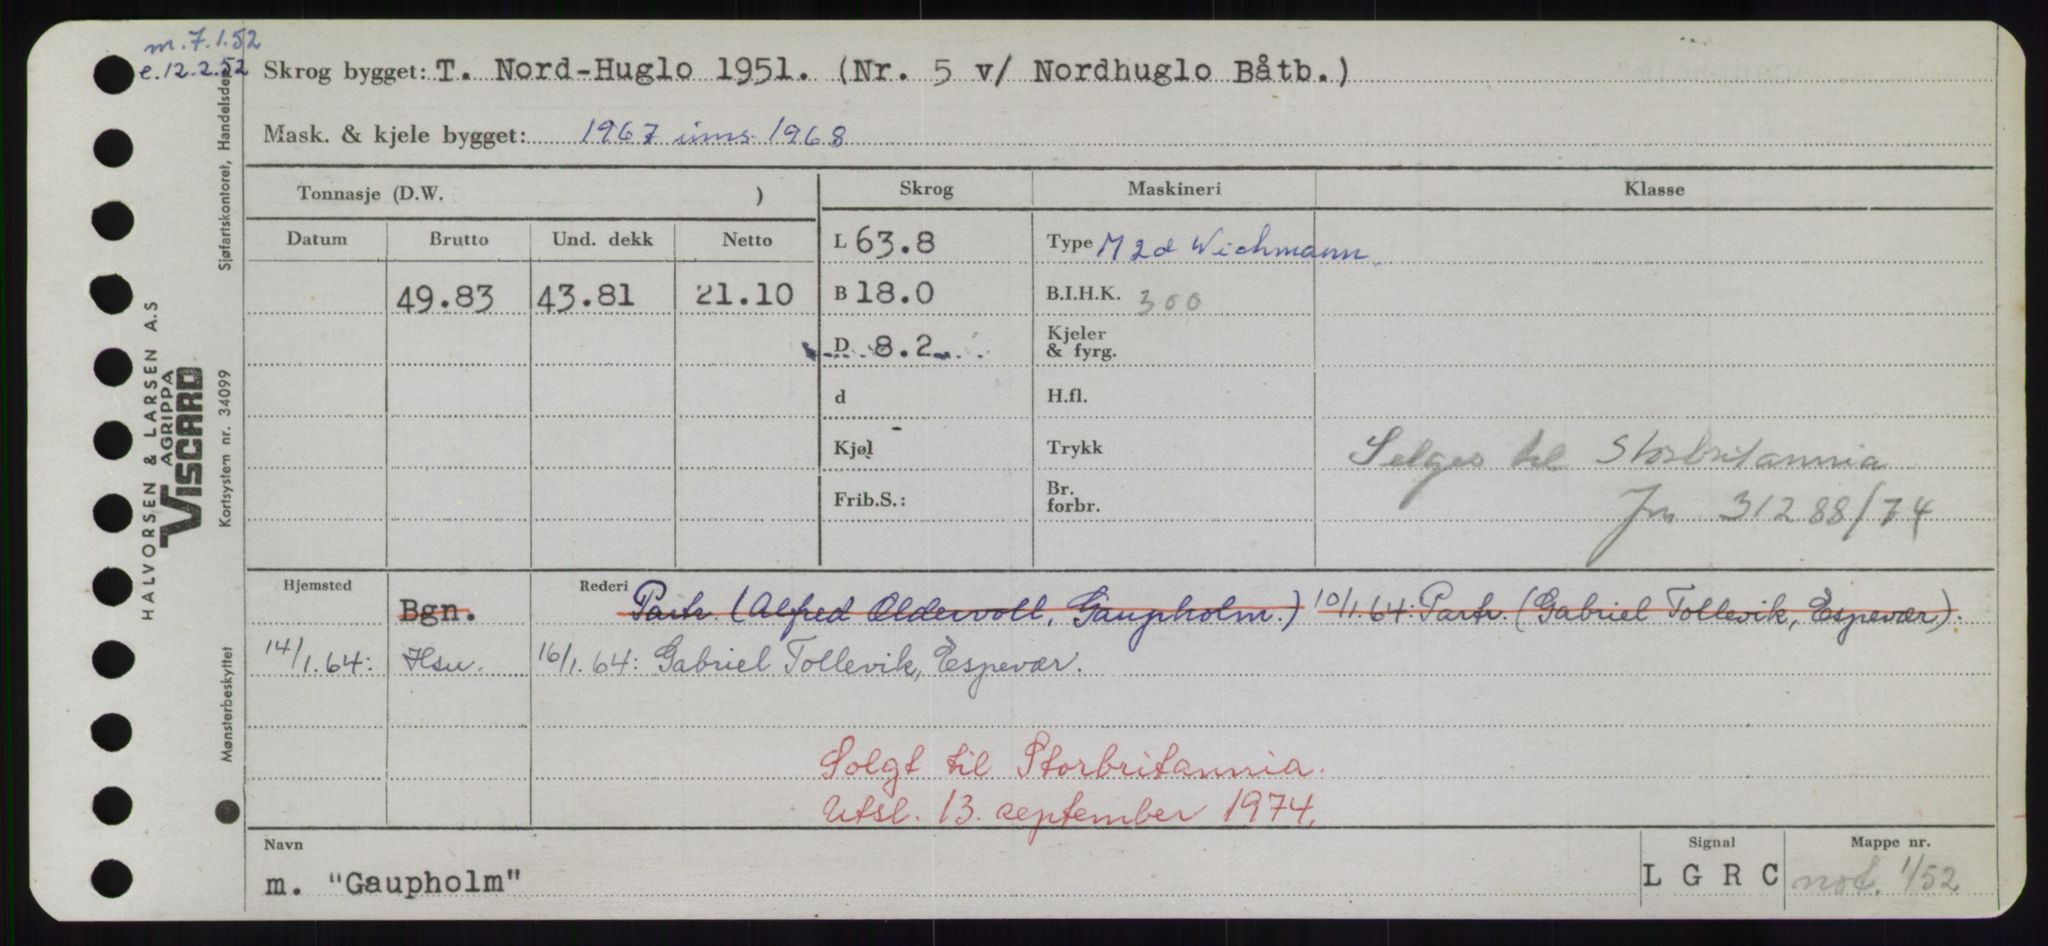 m. 7.1.52
e. 12.2.52
Skrog bygget: T. Nord-Huglo 1951. (Nr. 5 v/ Nordhuglo Båtb.)
Mask. & kjele bygget: 1967 inns. 1968
Tonnasje (D.W. )
Skrog Maskineri Klasse
Datum Brutto Und. dekk Netto
L 63.8 Type M 2d Wichmann
49.83 43.81 21.10 B 18.0 B.I.H.K. 300
D 8.2 Kjeler & fyrg.
d H.fl.
Kjøl Trykk Selges til Storbritannia
Frib.S.: Br. forbr. Jnr 31288/74
Hjemsted Rederi
Bgn. Partr. (Alfred Oldervoll, Gaupholm.) 10/1.64: Partr. (Gabriel Tollevik, Espevær).
14/1.64: Hsu. 16/1.64: Gabriel Tollevik, Espevær.
Solgt til Storbritannia.
Utsl. 13. september 1974.
Navn Signal Mappe nr.
m. "Gaupholm" L G R C not. 1/52
Sjøfartskontoret, Handelsdep.
Kortsystem nr. 34099
Mønsterbeskyttet
HALVORSEN & LARSEN A.S
AGRIPPA
VISCARD